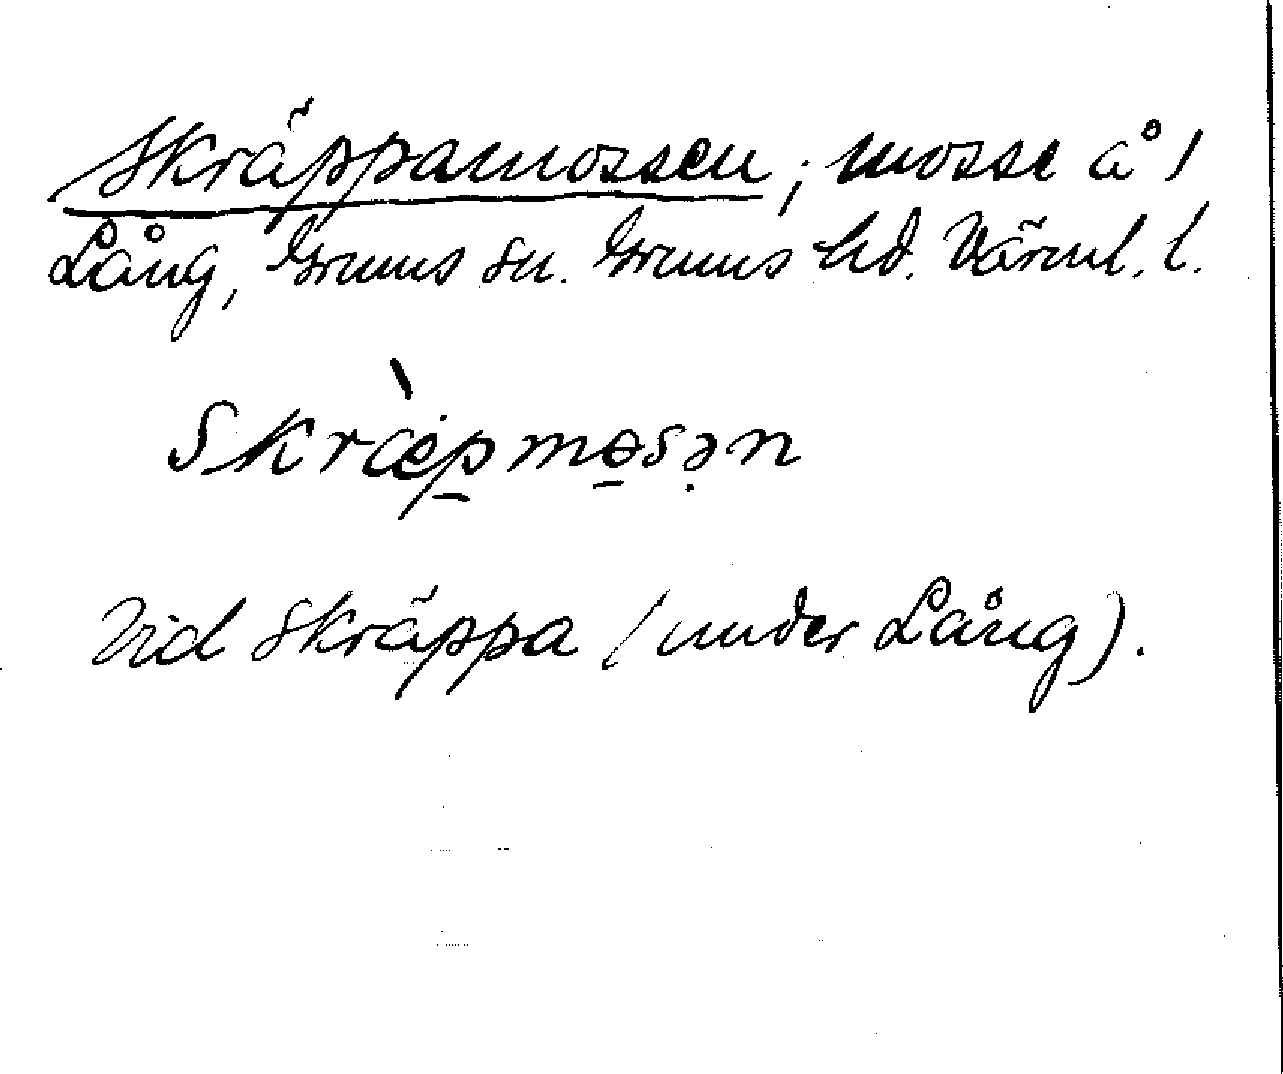 Skräppamossen; mosse å 1
Lång, Grums sn. Grums hd. Värml. l.
skræ̀pmɵsən
Vid Skräppa (under Lång).